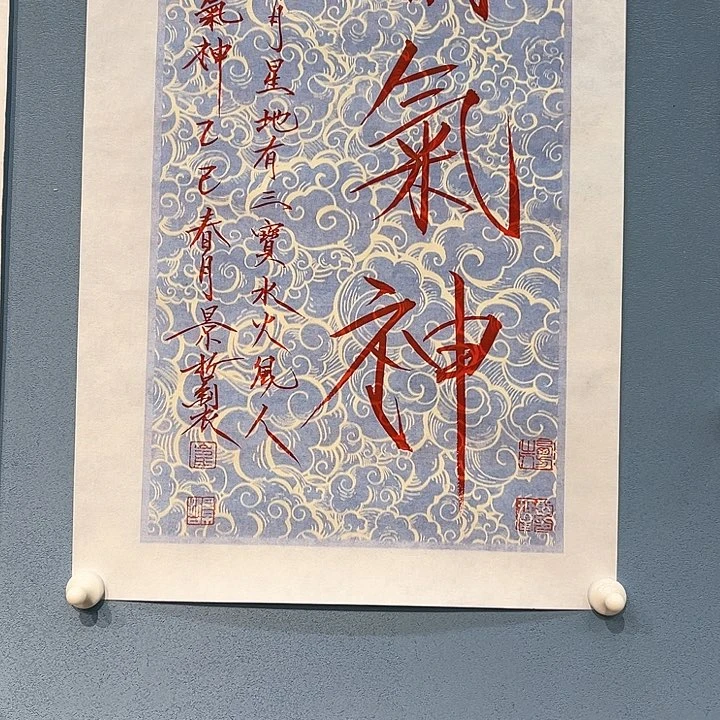 氣
神
月星地有三寶水火風人
氣神乙巳春月景哲製